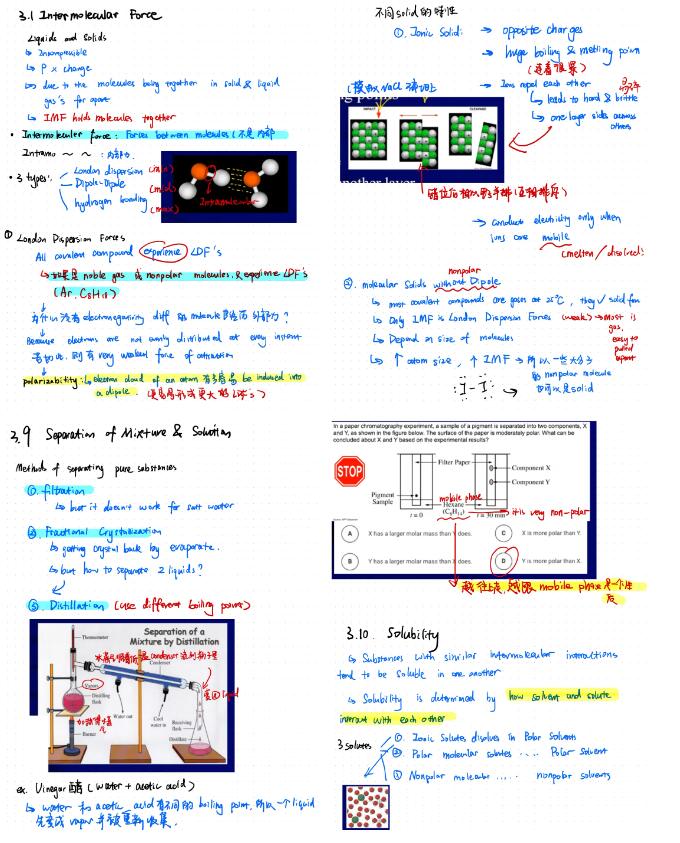 3.1 Intermolecular Force
Liquids and Solids
↳ Incompressible
↳ P x change
↳ due to the molecules being together in solid & liquid
gas's far apart
↳ IMF holds molecules together
• Intermolecular force: Forces between molecules (不是内部
Intramo ~ ~ : 内部力.
• 3 types:
London dispersion (min)
Dipole-Dipole (mid)
hydrogen bonding (max)
Intramolecular
① London Dispersion Forces
All covalent compound experience LDF's
↳ 如果是 noble gas 或 nonpolar molecules, & experience LDF's
(Ar, C8H18)
为什么没有electronegativity diff 的 molecule
Because electrons are not evenly distributed at every instant
若如此, 则有 very weak force of attraction
polarizability: ↳ electron cloud of an atom 有多容易 be induced into
a dipole. (更易形成更大的 LDF's)
不同solid的特性
①. Ionic Solid:
→ opposite charges
→ huge boiling & melting point
→ Ions repel each other
↳ leads to hard & brittle
↳ one layer slides across
others
IMPACT
CLEAVAGE
another layer
→ conduct electricity only when
ions are mobile
(melten / disolved)
nonpolar
②. molecular Solids without Dipole
↳ most covalent compounds are gases at 25°C, they ✓ solid form
↳ Only IMF is London Dispersion Forces (weak) → most is
gas,
easy to
pulled
apart
↳ Depend on size of molecules
↳ ↑ atom size, ↑ IMF → 所以一些大分子
的 nonpolar molecule
也可以是solid
:I-I:
3.9 Separation of Mixture & Solution
Methods of separating pure substances
①. filtration
↳ but it doesn't work for salt water
②. Fractional Crystallization
↳ getting crystal back by evaporate.
↳ but how to separate 2 liquids?
③. Distillation (use different boiling points)
Separation of a
Mixture by Distillation
Thermometer
Condenser
Vapors
Distilling
flask
Water out
Cool
water in
Receiving
flask
Burner
Distillate
ex. Vinegar 醋 (water + acetic acid)
↳ water 和 acetic acid 有不同的 boiling point, 所以一个 liquid
先变成 vapor 并被重新收集.
In a paper chromatography experiment, a sample of a pigment is separated into two components, X
and Y, as shown in the figure below. The surface of the paper is moderately polar. What can be
concluded about X and Y based on the experimental results?
STOP
Filter Paper
Component X
Component Y
Pigment
Sample
mobile phase
Hexane
(C6H14)
→ it is very non-polar
t = 0
t = 30 min
A X has a larger molar mass than Y does.
C X is more polar than Y.
B Y has a larger molar mass than X does.
D Y is more polar than X.
越往上走, 越跟 mobile phase 是一个性
质
3.10. Solubility
↳ Substances with similar intermolecular interactions
tend to be soluble in one another
↳ Solubility is determined by how solvent and solute
interact with each other
3 solutes
①. Ionic Solutes disolves in Polar Solvents
②. Polar molecular solutes ..... Polar Solvent
③ Nonpolar molecular ..... nonpolar solvents